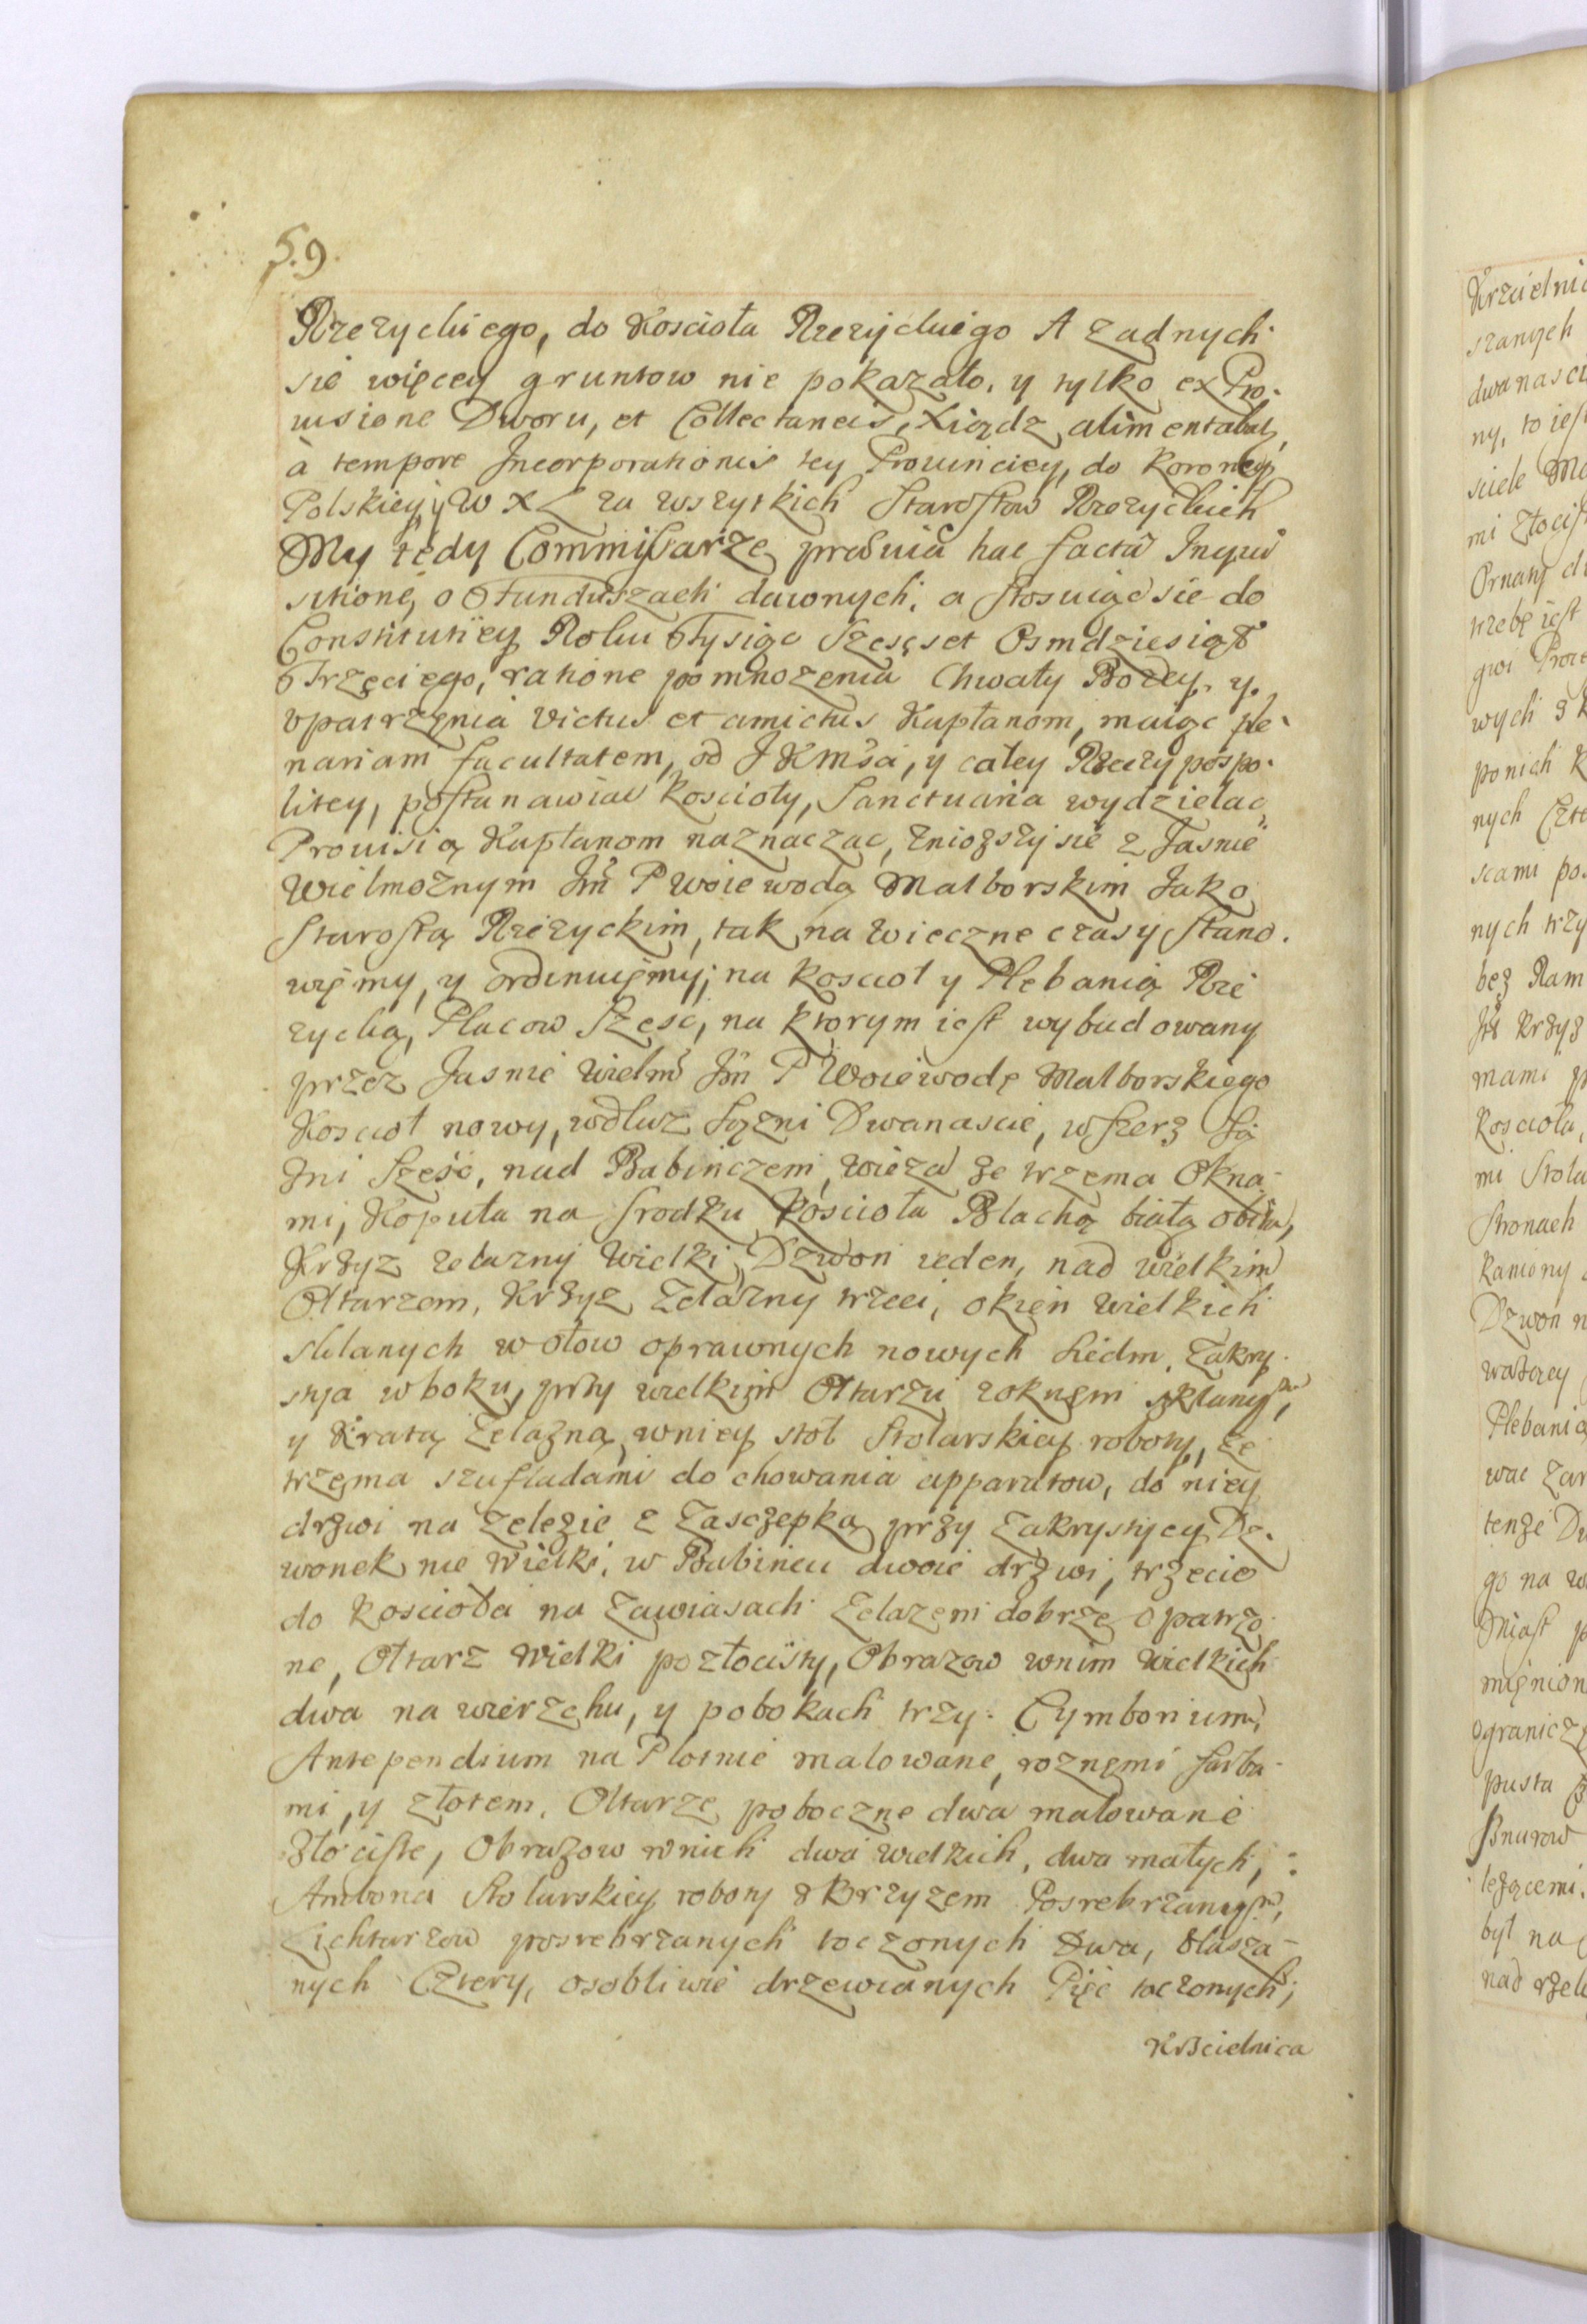 59.
Rzezyckiego, do Koscioła Rzezyckiego A zadnych
sie więcey gruntow nie pokazało, y tylko ex Pro-
uisione Dworu, et Collectaneis, Xiądz alimentabat,
à tempore Incorporationis tey Prouinciey, do Koroney
Polskiey, y W X L za wszytkich Starostow Rzezyckich
My tedy Commissarze, praeuia hac facta Inqui
sitione, o Funduszach dawnych, a stosuiąc sie do
Constitutiey Roku Tysiąc Szescset Osmdziesiąt
Trzeciego, ratione pomnozenia Chwały Bozey, y
opatrzenia Victus et amictus Kapłanom, maiąc ple-
nariam facultatem, od J K Msci, y całey Rzeczypospo-
litey, postanawiac Koscioły, Sanctuaria wydzielac,
Prouisią Kapłanom naznaczac, zniozszy sie z Jasnie
Wielmoznym Jm P Woiewodą Malborskim Jako
Starostą Rzezyckim, tak na wieczne czasy stano-
wiemy, y ordinuiemy; na Kosciol y Plebanią Rze
zycką, Placow Szesc, na ktorym iest wybudowany
przez Jasnie Wielm Jm P Woiewodę Malborskiego
Kosciol nowy, wdluz Sązni Dwanascie, w szerz Są
zni Szesc, nad Babinczem, wieza ze trzema Okna-
mi, Kopuła na srodku Kosciola Blachą białą obita,
Krzyz zelazny Wielki, Dzwon ieden, nad wielkim
Oltarzem, Krzyz Zelazny trzeci, okien wielkich
sklanych w ołow oprawnych nowych siedm, Zakry-
stya w boku, przy wielkim Ołtarzu z oknem sklanym,
y Kratą Zelazną, w niey stol Stolarskiey roboty, ze
trzema szufladami do chowania apparatow, do niey
drzwi na zelezie z Zasczepką, przy Zakrystyey Dz-
wonek nie wielki, w Babincu dwoie drzwi, trzecie
do Kosciola na Zawiasach Zelazem dobrze opatrzo
ne, Ołtarz Wielki pozłocisty, Obrazow w nim wielkich
dwa na wierzchu, y po bokach trzy. Cymborium,
Antependium na Plotnie malowane, roznemi farba-
mi, y złotem, Oltarze poboczne dwa malowane
złociste, Obrazow w nich dwa wielkich, dwa małych,
Ambona Stolarskiey roboty z Krzyzem Posrebrzanym,
Lichtarzow posrebrzanych toczonych Dwa, blasza-
nych Cztery, osobliwie drzewianych Pięć toczonych,
Krzcielnica